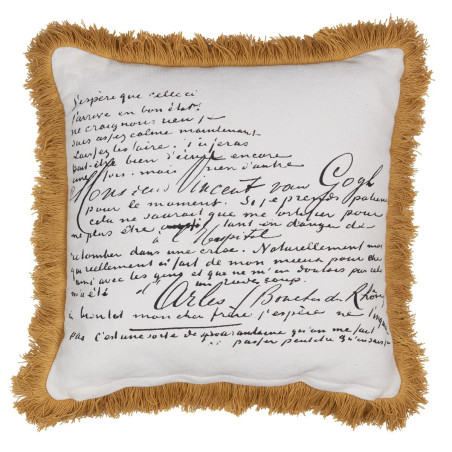 J'espère que celle ci
t'arrive en bon état.
ne craignons rien je
suis assez calme maintenant
Laissez les faire. tu feras
peut-être bien d'écrire encore
une fois. mais rien d'autre
Monsieur Vincent van Gogh
pour le moment. Si je prends patience
cela ne saurait que me fortifier pour
ne plus être tant en danger de
à l'Hospital
retomber dans une crise. Naturellement moi
qui réellement ai fait de mon mieux pour être
ami avec les gens et qui ne m'en doutais pas cela
m'a été un rude coup.
d'Arles (Bouches du Rhône
à bientôt mon cher frère j'espère ne
pas c'est une sorte de quarantaine qu'on me fait
passer peut-être qu'en sais-je